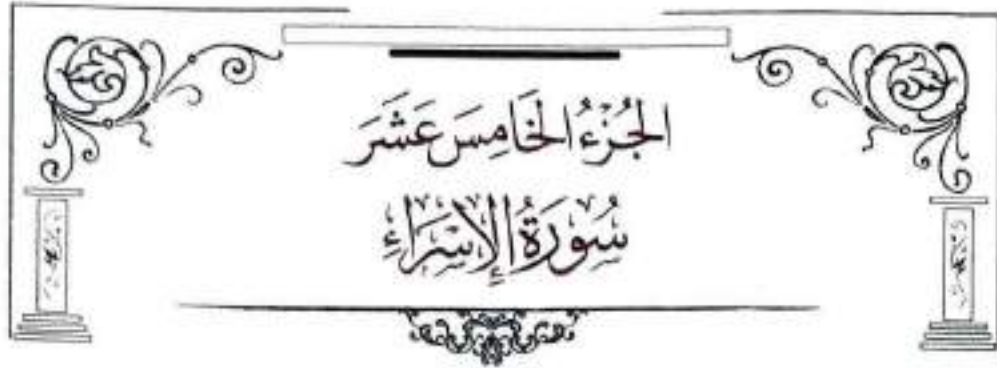 الجُزْءُ الخَامِسَ عَشَرَ
سُورَةُ الإِسْرَاءِ